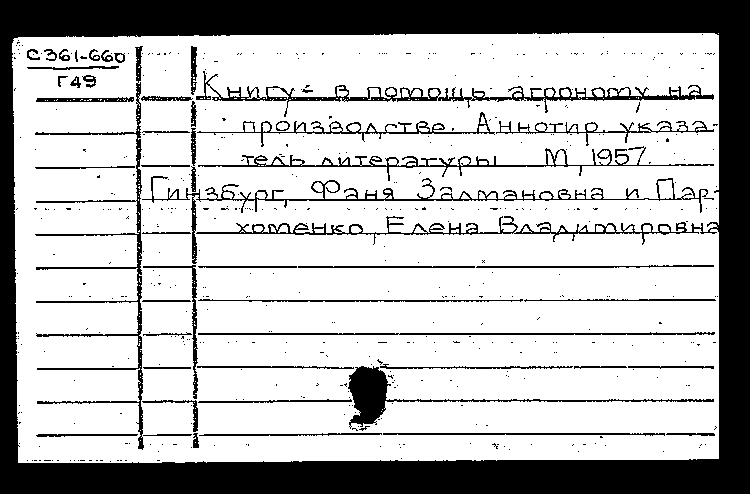 С361-660
Г49
Книгу - в помощь агроному на
производстве. Аннотир. указа-
тель литературы М., 1957.
Гинзбург, Фаня Залмановна и Пар-
хоменко, Елена Владимировна